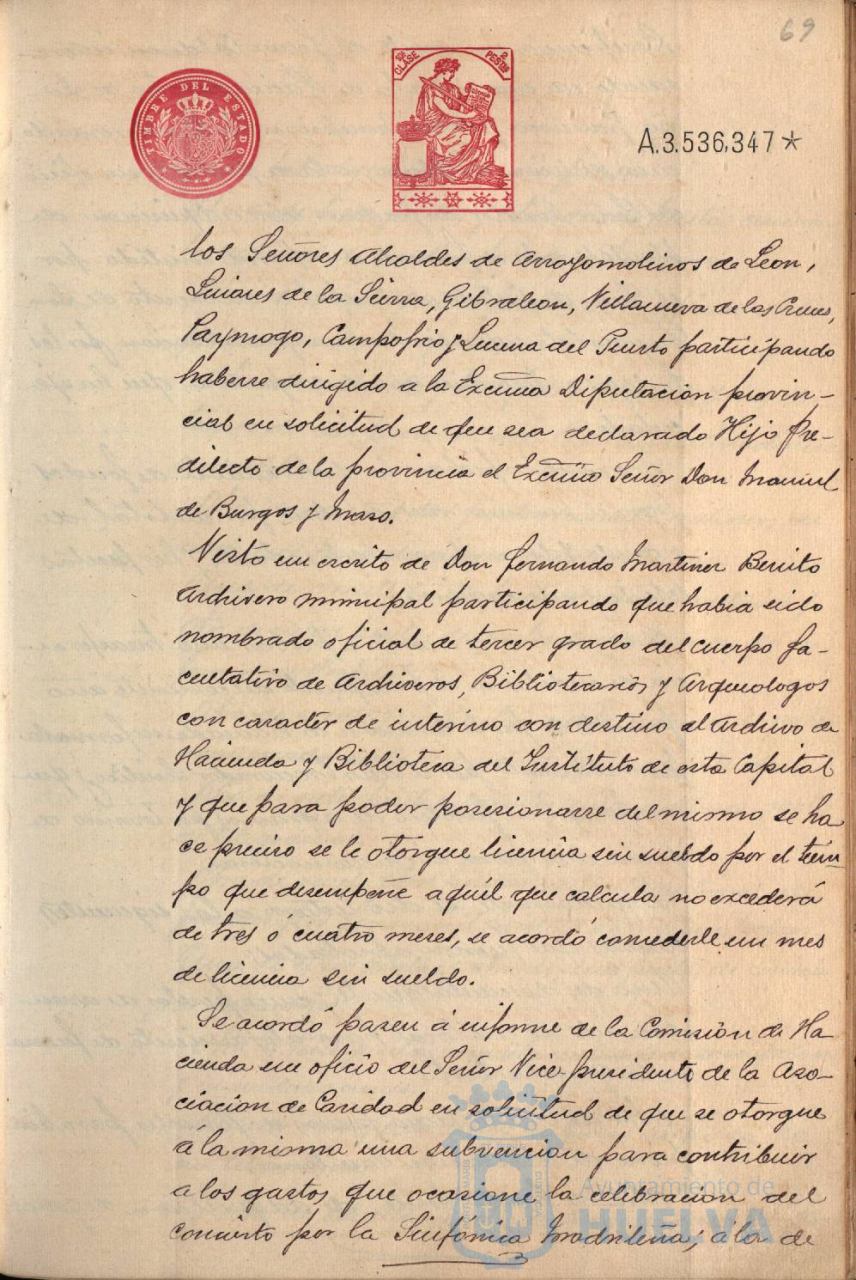 69
TIMBRE DEL ESTADO
10ª CLASE 2 PESETAS
A.3.536,347*
los Señores Alcaldes de Arroyomolinos de Leon,
Linares de la Sierra, Gibraleon, Villanueva de las Cruces,
Paymogo, Campofrio y Lucena del Puerto participando
haberse dirigido a la Excma Diputacion provin-
cial en solicitud de que sea declarado Hijo Pre-
dilecto de la provincia el Excmo Señor Don Manuel
de Burgos y Mazo.
Visto un escrito de Don Fernando Martinez Benito
Archivero municipal participando que habia sido
nombrado oficial de tercer grado del cuerpo fa-
cultativo de Archiveros, Bibliotecarios y Arqueologos
con caracter de interino con destino al Archivo de
Hacienda y Biblioteca del Instituto de esta Capital
y que para poder posesionarse del mismo se ha
ce preciso se le otorgue licencia sin sueldo por el tiem
po que desempeñe aquél que calcula no excederá
de tres ó cuatro meses, se acordó concederle un mes
de licencia sin sueldo.
Se acordó pasen á informe de la Comisión de Ha-
cienda un oficio del Señor Vice-presidente de la Aso-
ciacion de Caridad en solicitud de que se otorgue
á la misma una subvencion para contribuir
a los gastos que ocasione la celebracion del
concierto por la Sinfónica Madrileña; á la de
Ayuntamiento de
HUELVA